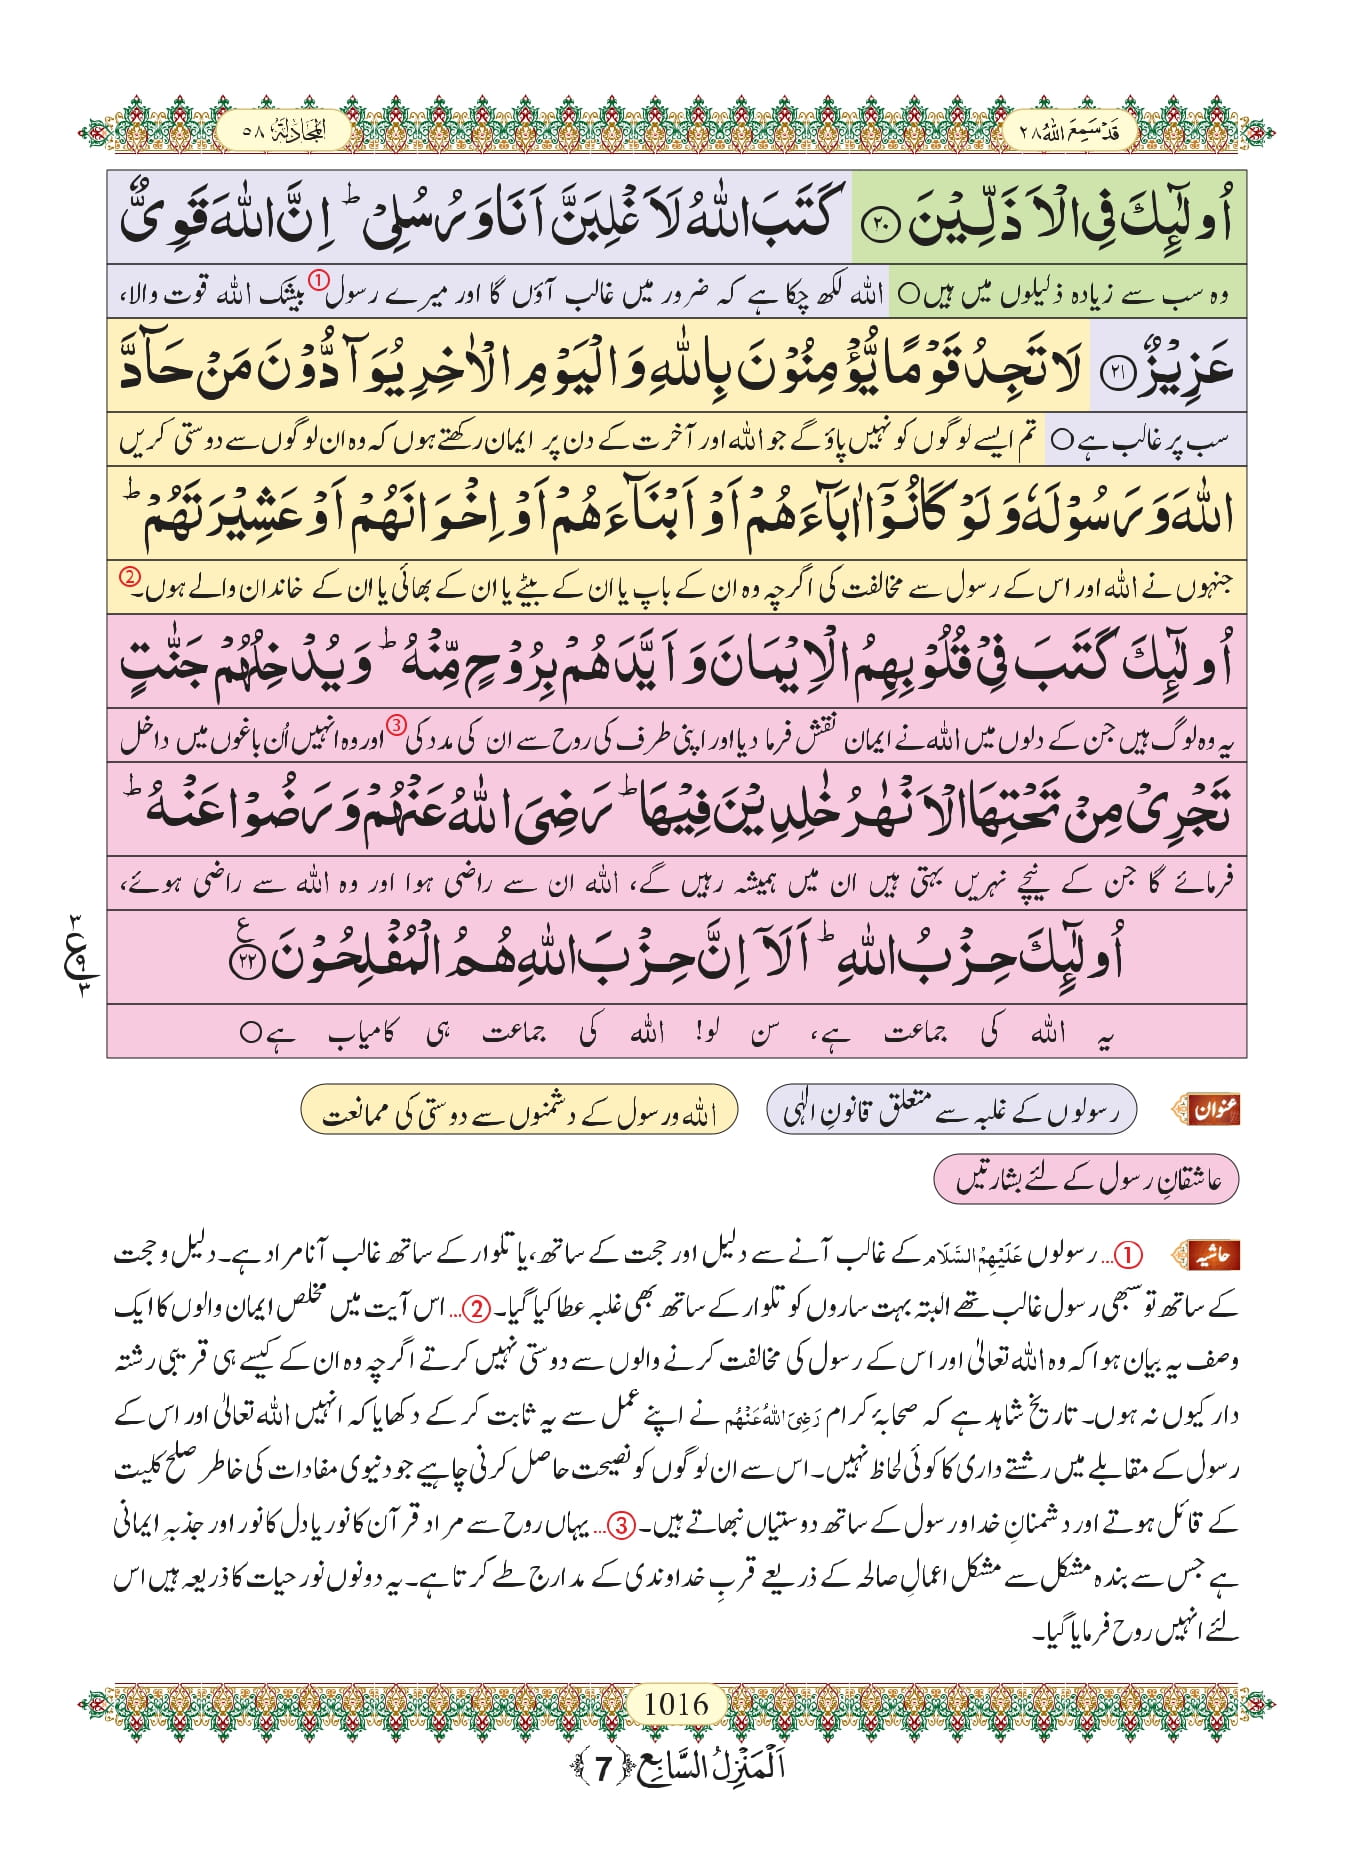 قَدْ سَمِعَ اللّٰهُ ٢٨
الْمُجَادَلَة ٥٨
اُولٰٓىِٕكَ فِی الْاَذَلِّیْنَ ﴿۲۰﴾ كَتَبَ اللّٰهُ لَاَغْلِبَنَّ اَنَا وَ رُسُلِیْ ؕ اِنَّ اللّٰهَ قَوِیٌّ
وہ سب سے زیادہ ذلیلوں میں ہیں○ اللہ لکھ چکا ہے کہ ضرور میں غالب آؤں گا اور میرے رسول① بیشک اللہ قوت والا،
عَزِیْزٌ ﴿۲۱﴾ لَا تَجِدُ قَوْمًا یُّؤْمِنُوْنَ بِاللّٰهِ وَ الْیَوْمِ الْاٰخِرِ یُوَآدُّوْنَ مَنْ حَآدَّ
سب پر غالب ہے○ تم ایسے لوگوں کو نہیں پاؤ گے جو اللہ اور آخرت کے دن پر ایمان رکھتے ہوں کہ وہ ان لوگوں سے دوستی کریں
اللّٰهَ وَ رَسُوْلَهٗ وَ لَوْ كَانُوْۤا اٰبَآءَهُمْ اَوْ اَبْنَآءَهُمْ اَوْ اِخْوَانَهُمْ اَوْ عَشِیْرَتَهُمْ ؕ
جنہوں نے اللہ اور اس کے رسول سے مخالفت کی اگرچہ وہ ان کے باپ یا ان کے بیٹے یا ان کے بھائی یا ان کے خاندان والے ہوں۔②
اُولٰٓىِٕكَ كَتَبَ فِیْ قُلُوْبِهِمُ الْاِیْمَانَ وَ اَیَّدَهُمْ بِرُوْحٍ مِّنْهُ ؕ وَ یُدْخِلُهُمْ جَنّٰتٍ
یہ وہ لوگ ہیں جن کے دلوں میں اللہ نے ایمان نقش فرما دیا اور اپنی طرف کی روح سے ان کی مدد کی③ اور وہ انہیں اُن باغوں میں داخل
تَجْرِیْ مِنْ تَحْتِهَا الْاَنْهٰرُ خٰلِدِیْنَ فِیْهَا ؕ رَضِیَ اللّٰهُ عَنْهُمْ وَ رَضُوْا عَنْهُ ؕ
فرمائے گا جن کے نیچے نہریں بہتی ہیں ان میں ہمیشہ رہیں گے، اللہ ان سے راضی ہوا اور وہ اللہ سے راضی ہوئے،
اُولٰٓىِٕكَ حِزْبُ اللّٰهِ ؕ اَلَاۤ اِنَّ حِزْبَ اللّٰهِ هُمُ الْمُفْلِحُوْنَ ﴿۲۲﴾ ع
٣ ع ٩ ٣
یہ اللہ کی جماعت ہے، سن لو! اللہ کی جماعت ہی کامیاب ہے○
عنوان رسولوں کے غلبہ سے متعلق قانونِ الٰہی اللہ ورسول کے دشمنوں سے دوستی کی ممانعت
عاشقانِ رسول کے لئے بشارتیں
حاشیہ ①... رسولوں عَلَیْہِمُ السَّلَام کے غالب آنے سے دلیل اور حجت کے ساتھ، یا تلوار کے ساتھ غالب آنا مراد ہے۔ دلیل و حجت
کے ساتھ تو سبھی رسول غالب تھے البتہ بہت ساروں کو تلوار کے ساتھ بھی غلبہ عطا کیا گیا۔ ②... اس آیت میں مخلص ایمان والوں کا ایک
وصف یہ بیان ہوا کہ وہ اللہ تعالیٰ اور اس کے رسول کی مخالفت کرنے والوں سے دوستی نہیں کرتے اگرچہ وہ ان کے کیسے ہی قریبی رشتہ
دار کیوں نہ ہوں۔ تاریخ شاہد ہے کہ صحابۂ کرام رَضِیَ اللّٰہُ عَنْہُم نے اپنے عمل سے یہ ثابت کر کے دکھایا کہ انہیں اللہ تعالیٰ اور اس کے
رسول کے مقابلے میں رشتے داری کا کوئی لحاظ نہیں۔ اس سے ان لوگوں کو نصیحت حاصل کرنی چاہیے جو دنیوی مفادات کی خاطر صلح کلیت
کے قائل ہوتے اور دشمنانِ خدا و رسول کے ساتھ دوستیاں نبھاتے ہیں۔ ③... یہاں روح سے مراد قرآن کا نور یا دل کا نور اور جذبہ ایمانی
ہے جس سے بندہ مشکل سے مشکل اعمالِ صالحہ کے ذریعے قربِ خداوندی کے مدارج طے کرتا ہے۔ یہ دونوں نور حیات کا ذریعہ ہیں اس
لئے انہیں روح فرمایا گیا۔
1016
اَلْمَنْزِلُ السَّابِع ﴿7﴾